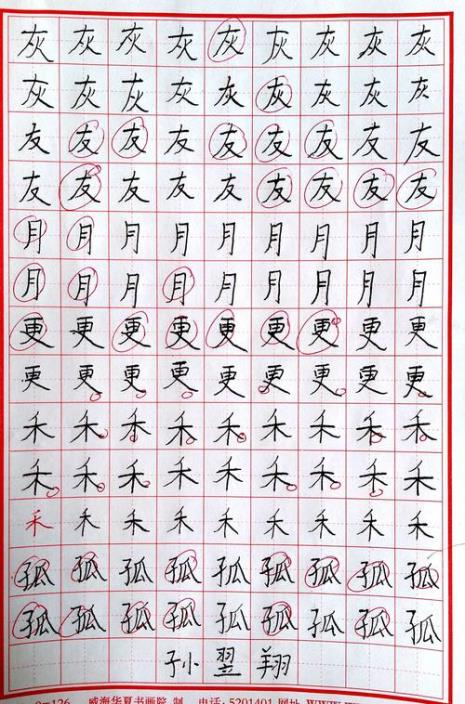 灰灰灰灰灰灰灰灰灰
灰灰灰灰灰灰灰灰灰
友友友友友友友友友
友友友友友友友友友
月月月月月月月月月
月月月月月月月月月
更更更更更更更更更
更更更更更更更更更
禾禾禾禾禾禾禾禾禾
禾禾禾禾禾禾禾禾禾
禾禾禾禾禾禾禾禾禾
孤孤孤孤孤孤孤孤孤
孤孤孤孤孤孤孤孤孤
孙翌翔
威海华夏书画院 制 电话:5201401 网址